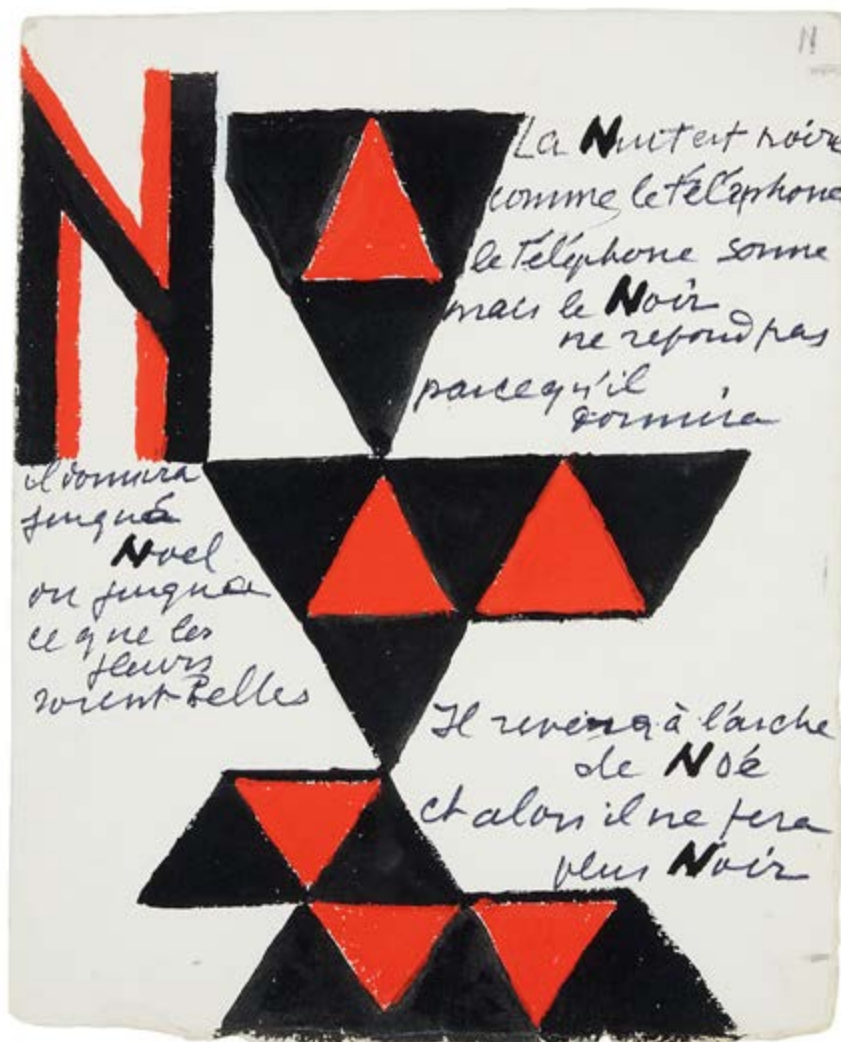 N
N
La Nuit est noire
comme le téléphone
le Téléphone sonne
mais le Noir
ne repond pas
parcequ'il
dormira
il dormira
jusqu'à
Noel
ou jusqu'a
ce que les
fleurs
soient Belles
Il à l'arche
de Noé
et alors il ne fera
plus Noir